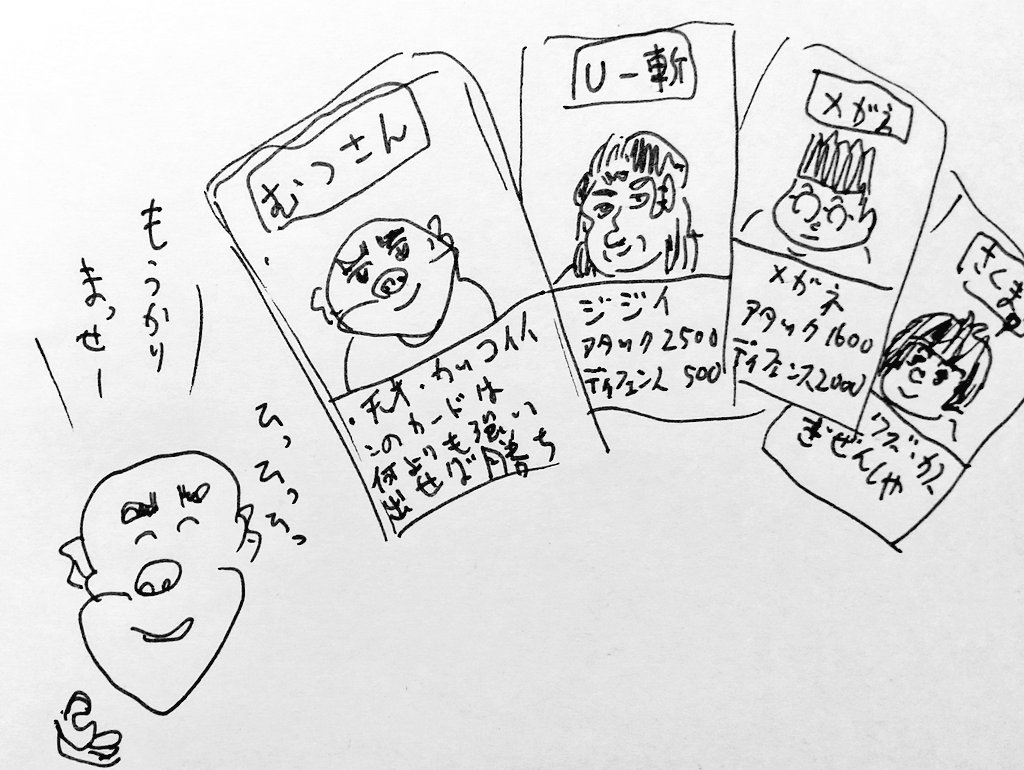 もうかり
まっせー
むつさん
・天才・カッコイイ
このカードは
何よりも強い
出せば勝ち
U一斬
ジジイ
アタック2500
ディフェンス500
メガネ
メガネ
アタック1600
ディフェンス2000
きくま
クズカス
ぎぜんしゃ